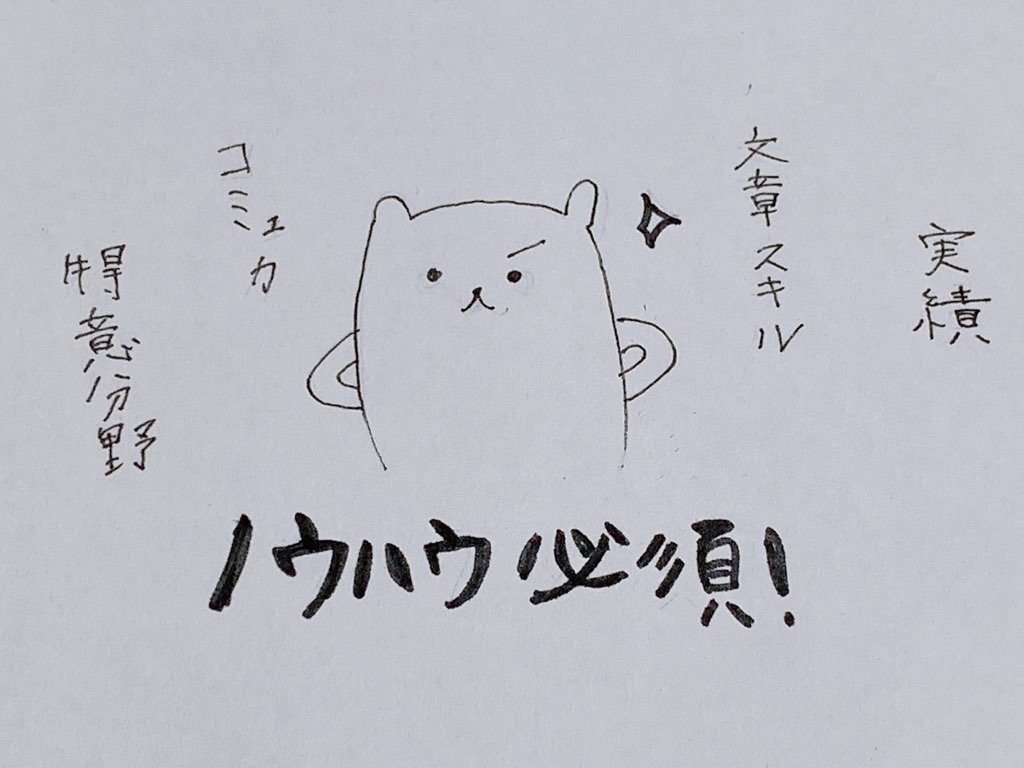 実績
文章スキル
コミュ力
得意分野
ノウハウ必須!